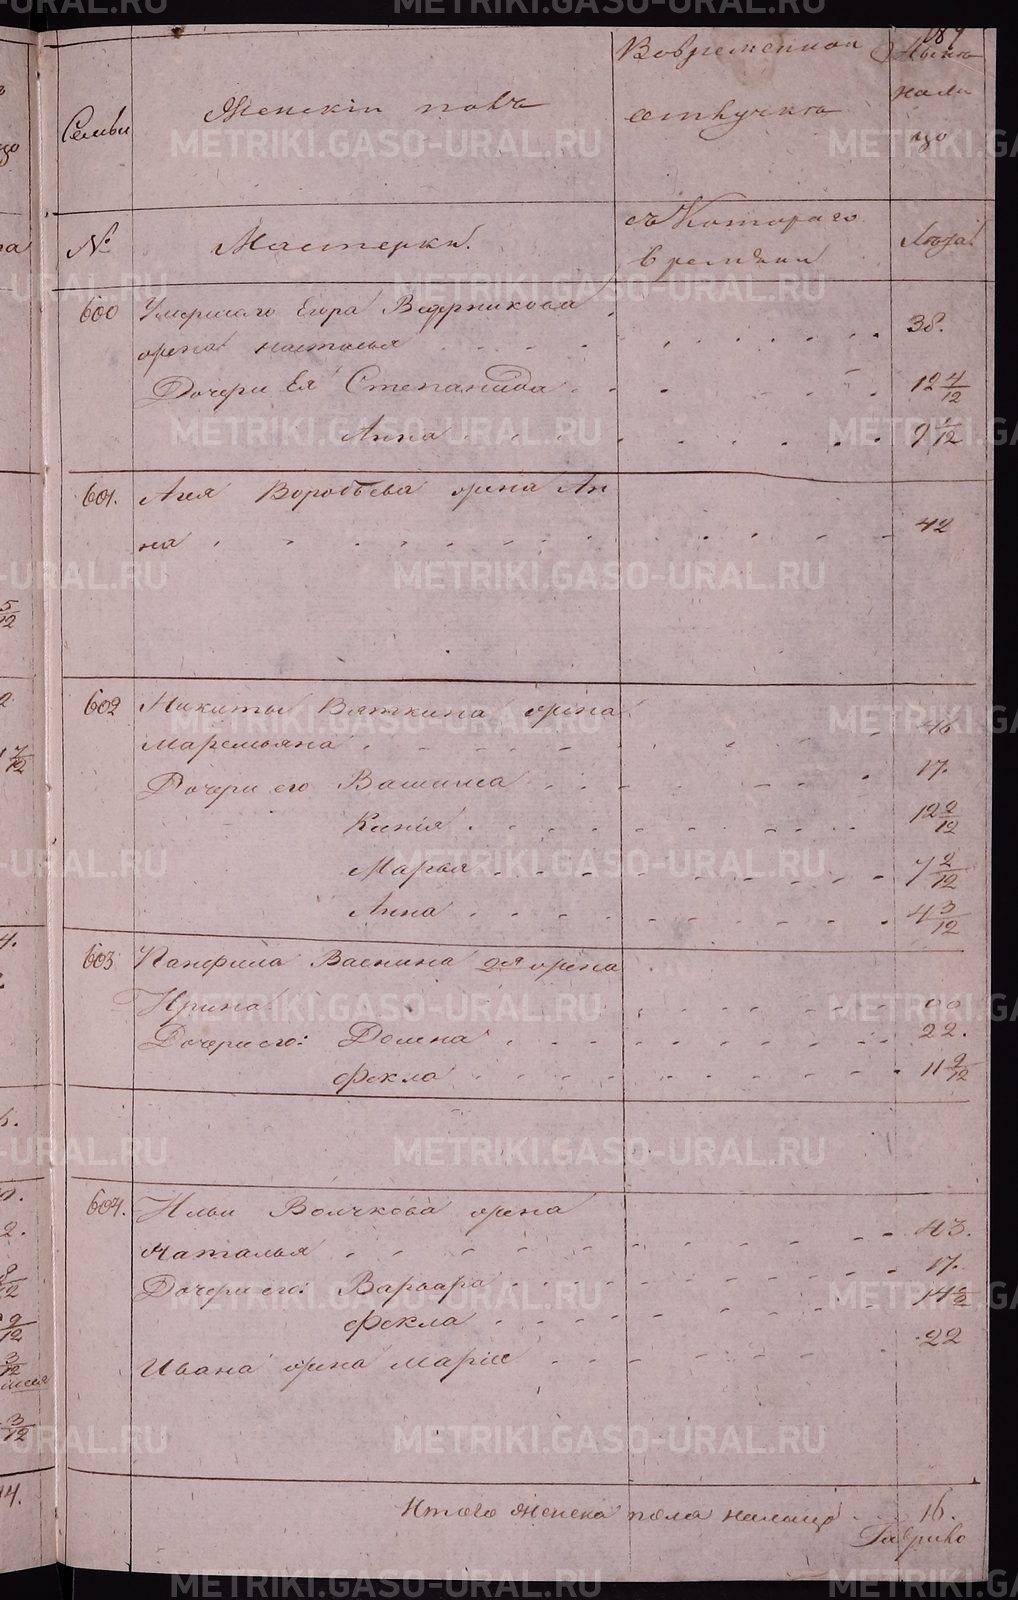 Семьи
Женскiй полъ
Вовременной
отлучкѣ
Нынѣ
нали
цо
№
Мастерки.
съ Котораго
времѣни
Лѣта
600 Умершаго Егора Ведерникова
жена Настасья 38.
Дочери Ея Степанида 12 4/12
Анна
601. Агея Воробьева жена Ан
на 42
602 Никиты Вяткина жена
Маремьяна 46
Дочери его Васиниса 17.
Ксенiя 12 2/12
Марья 7 2/12
Анна 4 3/12
603 Панфила Васкина жена
Ирина
Дочери его: Домна 22.
Фекла 11 9/12
604. Ильи Волчкова жена
Наталья 43.
Дочери его: Варвара 17.
Фекла
Ивана жена Марья 22
Итого женска пола налицо 16.
METRIKI.GASO-URAL.RU